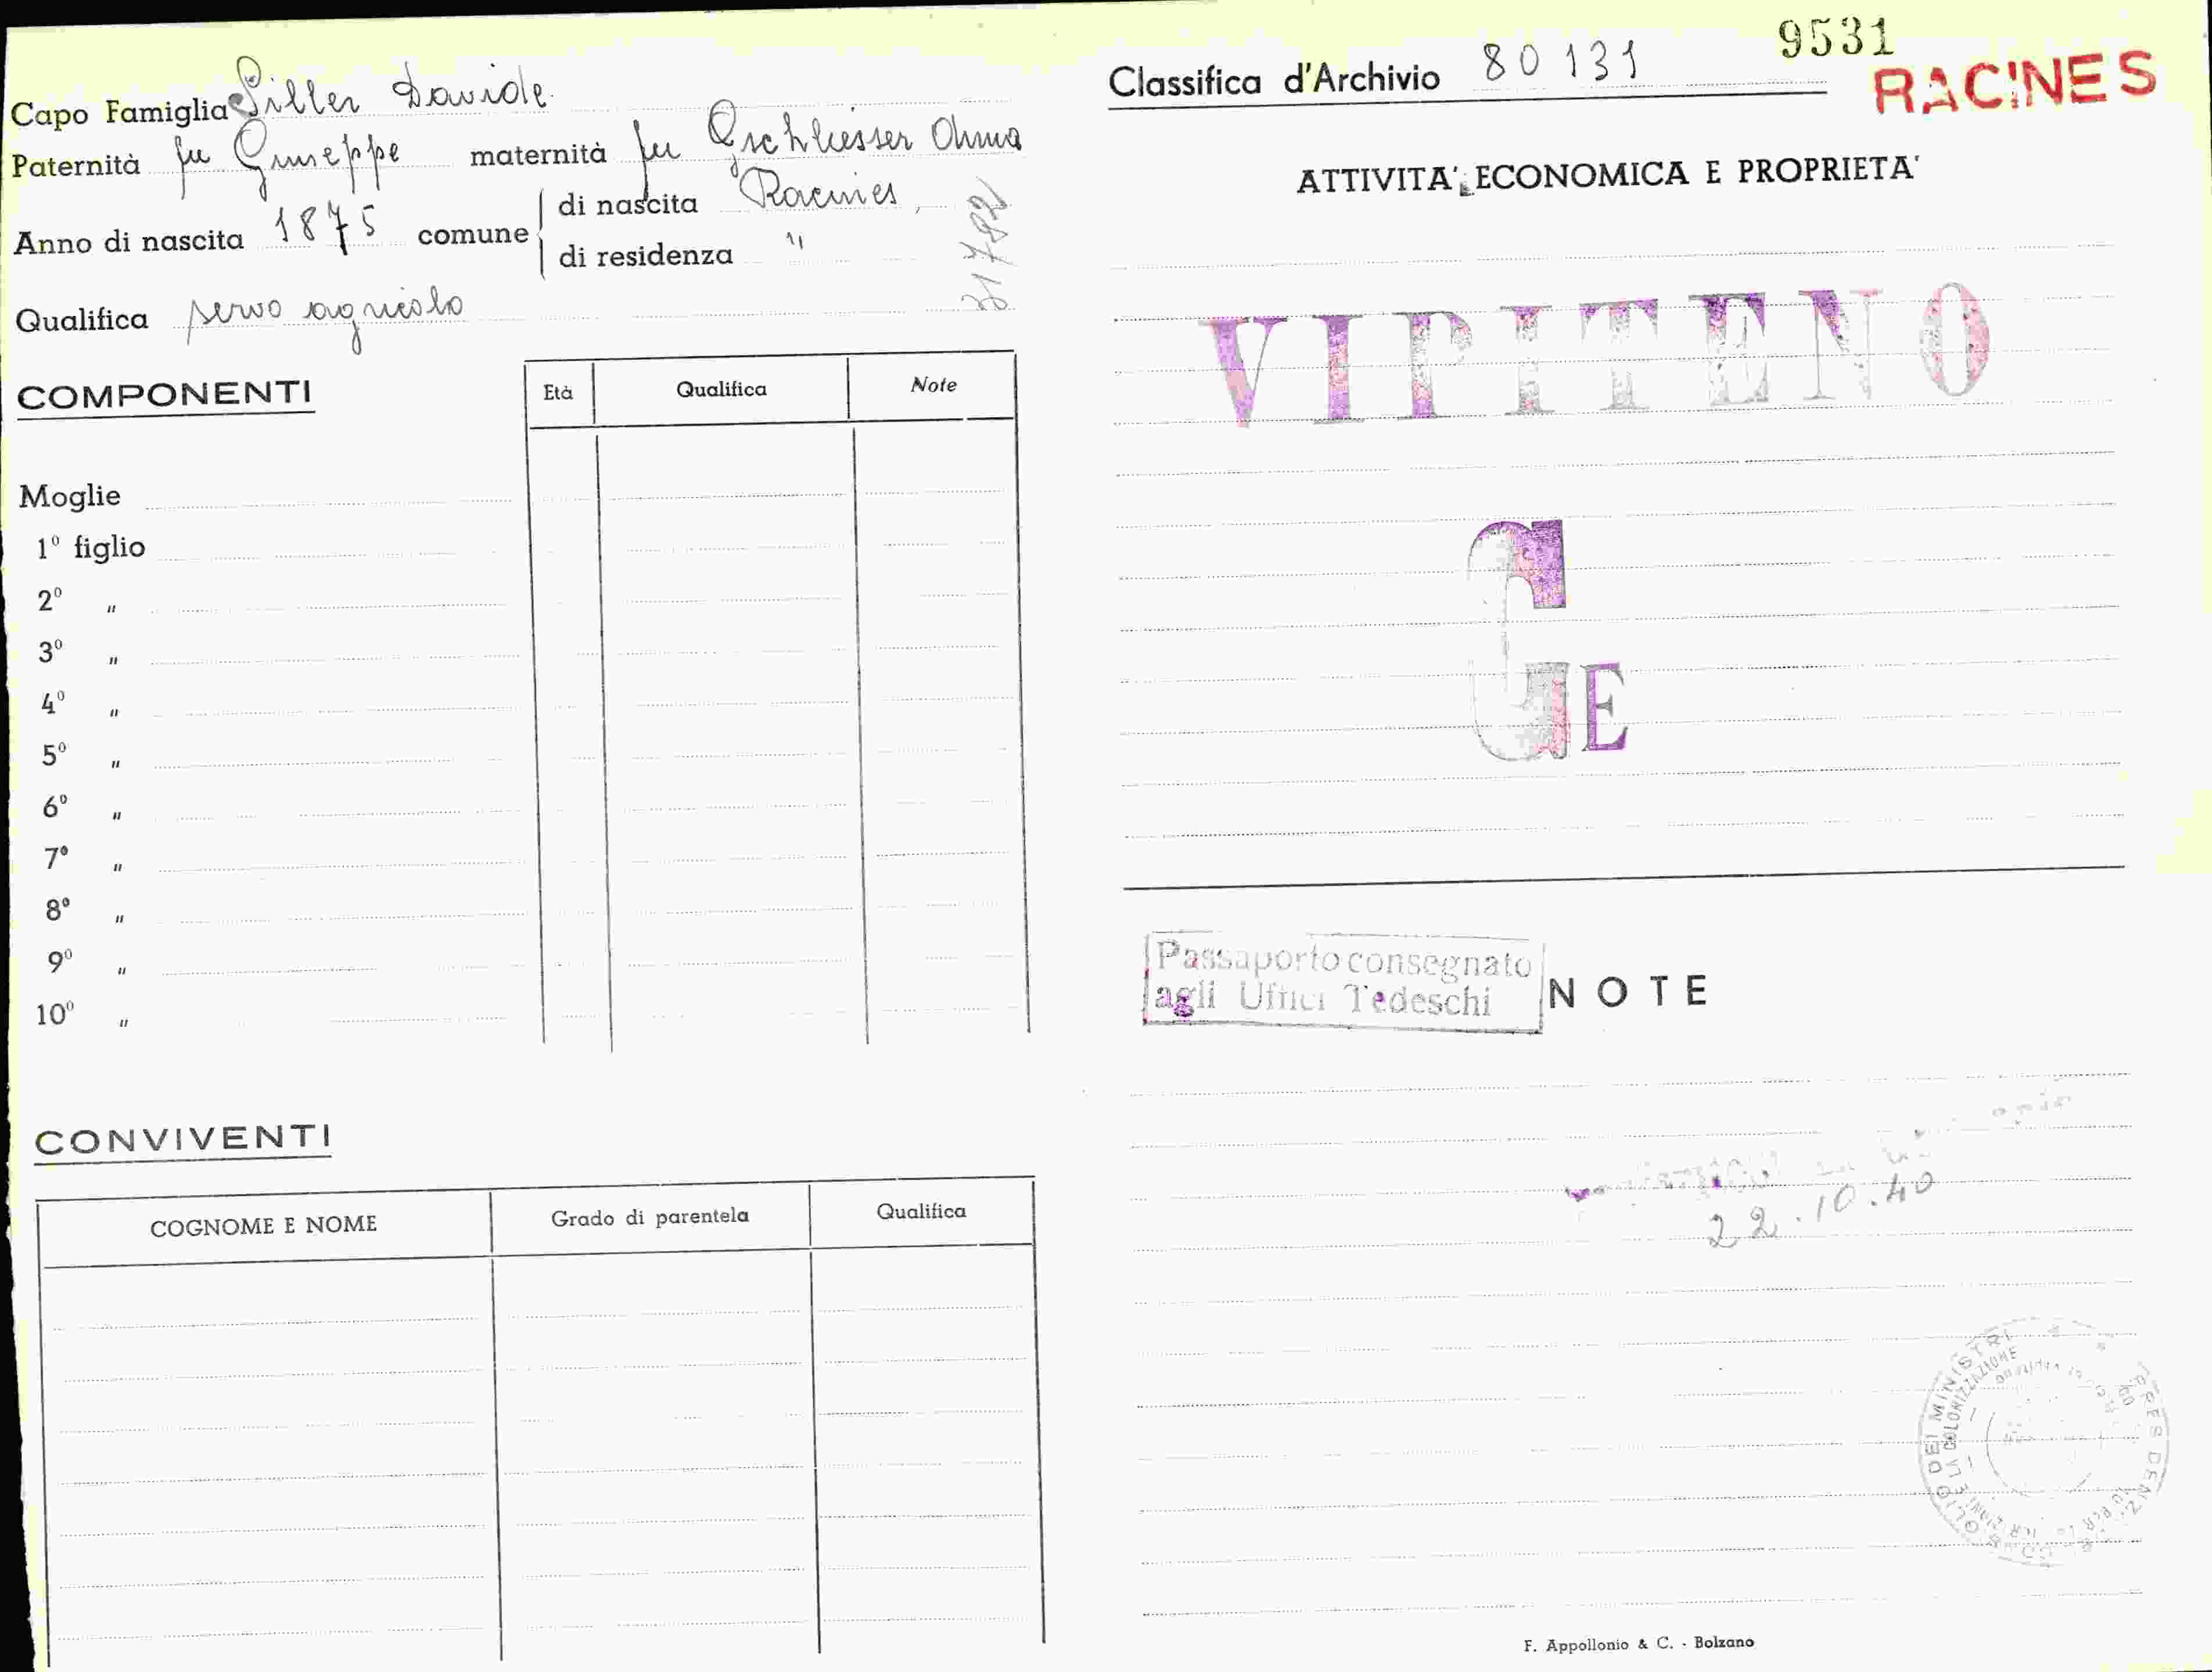 Capo Famiglia Siller Davide
Paternità fu Giuseppe maternità fu Gschliesser Anna
Anno di nascita 1875 comune di nascita Racines
di residenza "
31782
Qualifica servo agricolo
COMPONENTI Età Qualifica Note
Moglie
1º figlio
2º "
3º "
4º "
5º "
6º "
7º "
8º "
9º "
10º "
CONVIVENTI
COGNOME E NOME Grado di parentela Qualifica
9531
Classifica d'Archivio 80131 RACINES
ATTIVITA' ECONOMICA E PROPRIETA'
VIPITENO
G
GE
Passaporto consegnato
agli Uffici Tedeschi
NOTE
22.10.40
DEI MINISTRI
E LA COLONIZZAZIONE
F. Appollonio & C. - Bolzano